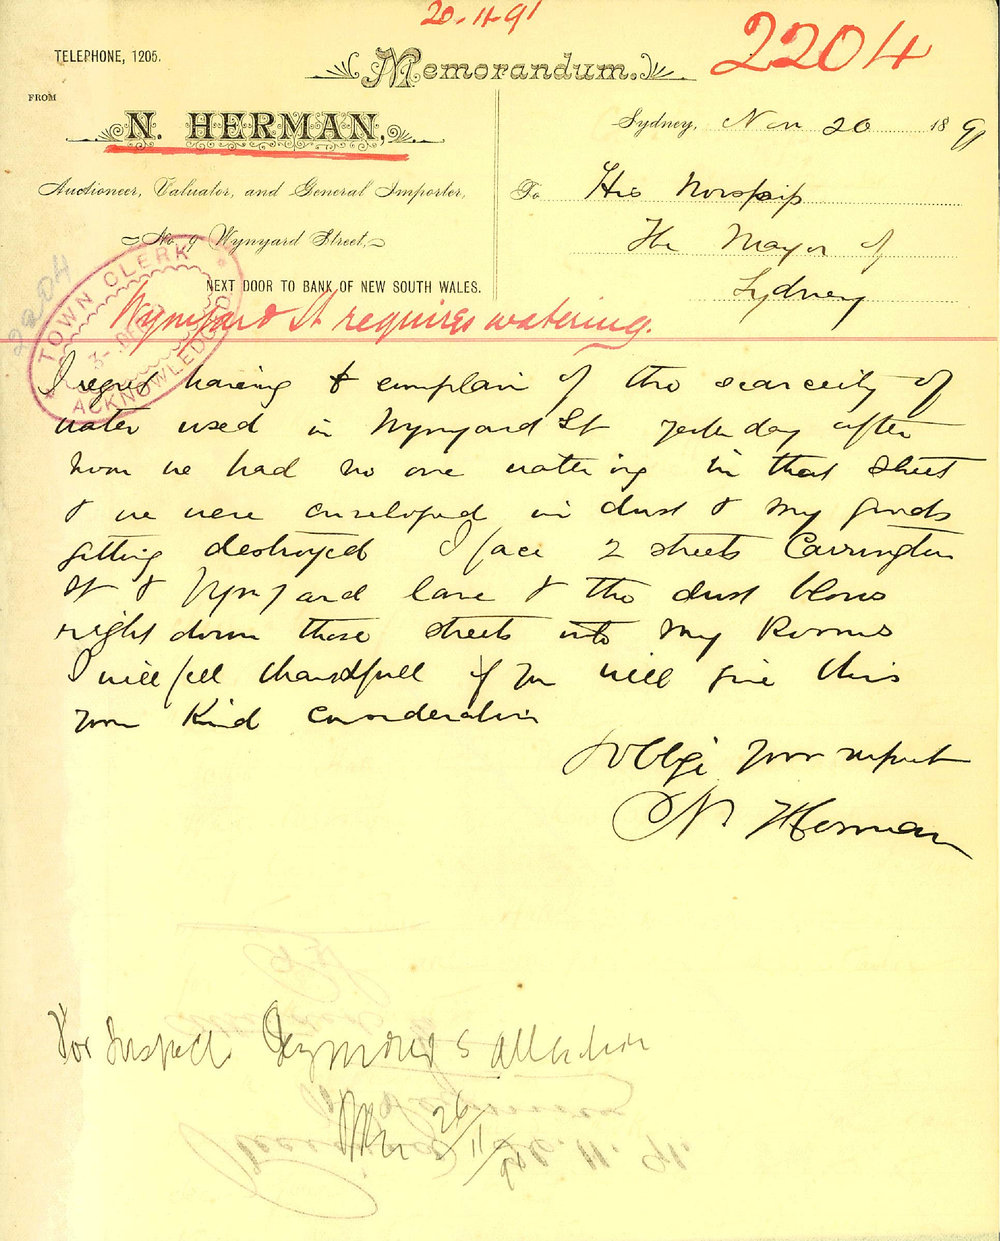 20-11-91
2204
TELEPHONE, 1205.
Memorandum.
FROM
N. HERMAN,
Auctioneer, Valuator, and General Importer,
No. 9 Wynyard Street,
NEXT DOOR TO BANK OF NEW SOUTH WALES.
Sydney, Nov 20 1891
To His Worship
The Mayor of
Sydney
2204
TOWN CLERK
3- DEC
ACKNOWLEDGED
Wynyard St requires watering.
I regret having to complain of the scarcity of
water used in Wynyard St yesterday after
noon we had no one watering in that street
& we were enveloped in dust & my goods
getting destroyed I face 2 streets Carrington
St & Wynyard lane & the dust blows
right down those streets into my Rooms
I will feel thankfull if you will give this
your Kind Consideration
& oblige your
N Herman
For Inspectr Seymour's attention
26/11/91